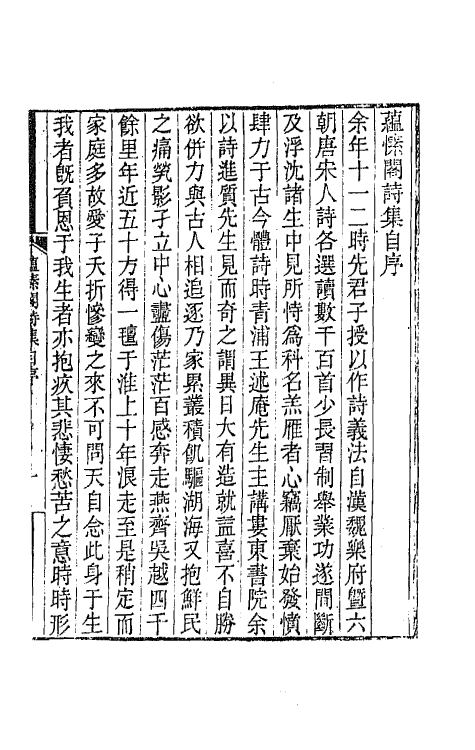 蘊愫閣詩集自序
余年十一二時先君子授以作詩義法自漢魏樂府暨六
朝唐宋人詩各選讀數千百首少長習制舉業功遂間斷
及浮沈諸生中見所恃爲科名羔雁者心竊厭棄始發憤
肆力于古今體詩時青浦王述庵先生主講婁東書院余
以詩進質先生見而奇之謂異日大有造就益喜不自勝
欲併力與古人相追逐乃家累叢積飢驅湖海又抱鮮民
之痛煢影孑立中心衋傷茫茫百感奔走燕齊吳越四千
餘里年近五十方得一氊于淮上十年浪走至是稍定而
家庭多故愛子夭折慘變之來不可問天自念此身于生
我者旣負恩于我生者亦抱疚其悲悽愁苦之意時時形
蘊愫閣詩集自序
一